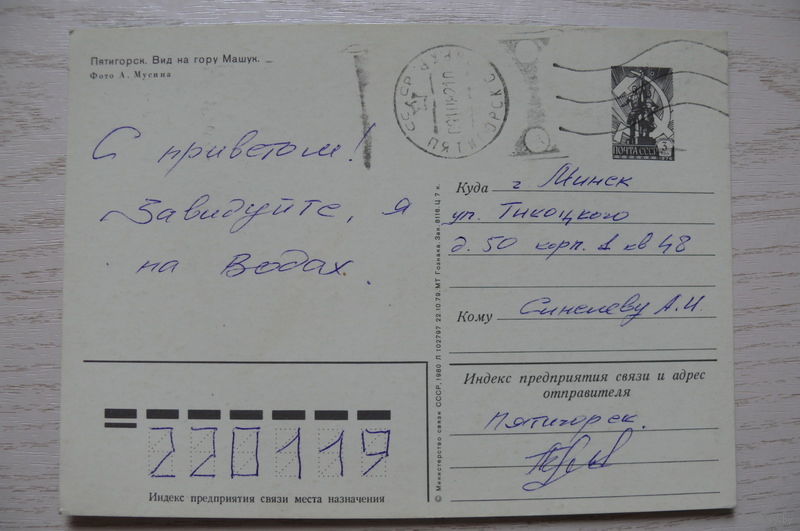 Пятигорск. Вид на гору Машук.
Фото А. Мусина
СССР
ПЯТИГОРСК
ПОЧТА СССР
3
С приветом!
Завидуйте, я
на Водах.
Куда г Минск
ул. Тикоцкого
д. 50 корп. 1 кв 48
Кому Синелеву А.И.
© Министерство связи СССР, 1980 Л 102797 22.10.79. МТ Гознака. Зак. 8116. Ц 7 к.
Индекс предприятия связи и адрес
отправителя
Пятигорск.
220119
Индекс предприятия связи места назначения